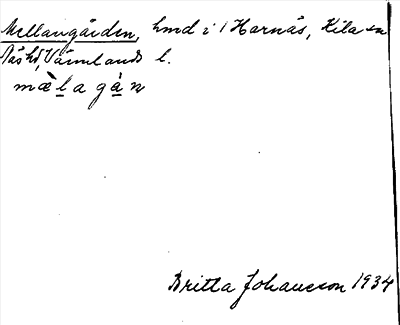 Mellangården, hmd i 1 Harnäs, Kila sn
Näs hd, Värmlands l.
mæ̀l̲a gå̲̀n
Britta Johansson 1934